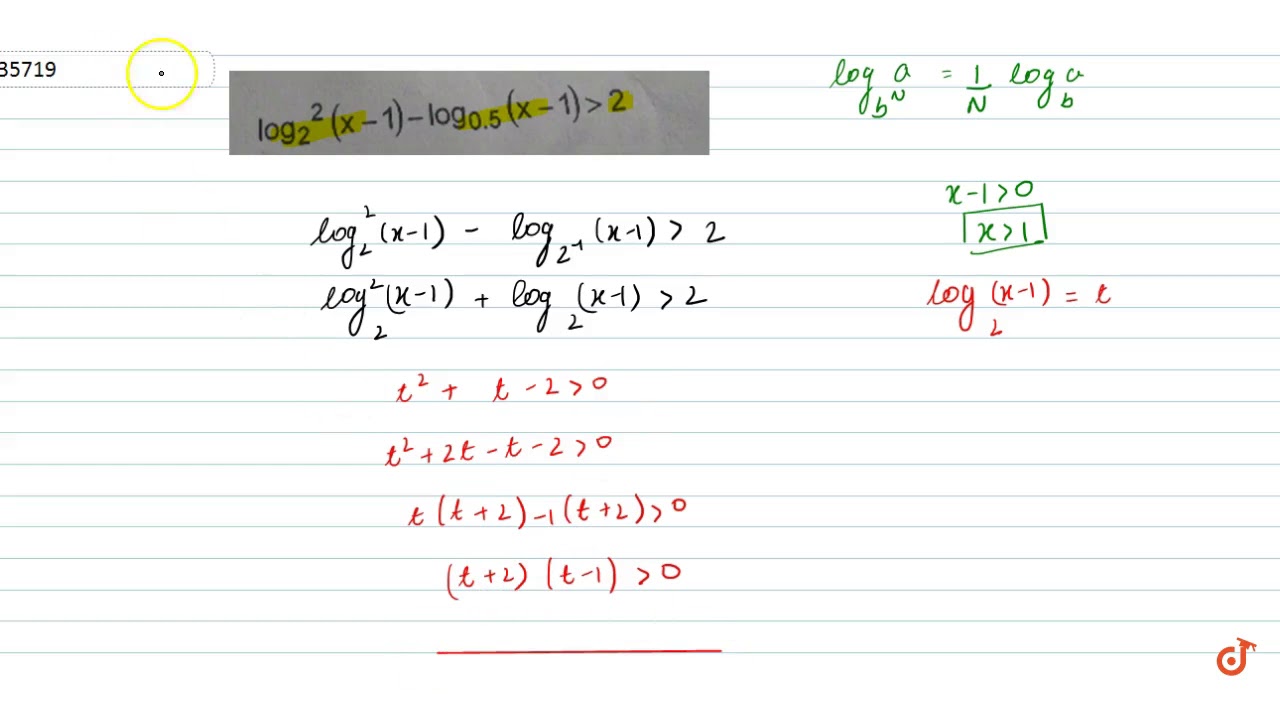 35719
log₂²(x – 1) – log₀.₅(x – 1) > 2
log_{b^N} a = 1/N log_b a
x-1>0
x>1
log₂²(x-1) - log_{2^-1}(x-1) > 2
log₂²(x-1) + log₂(x-1) > 2
log₂(x-1) = t
t² + t - 2 > 0
t² + 2t - t - 2 > 0
t(t+2) -1(t+2) > 0
(t+2) (t-1) > 0